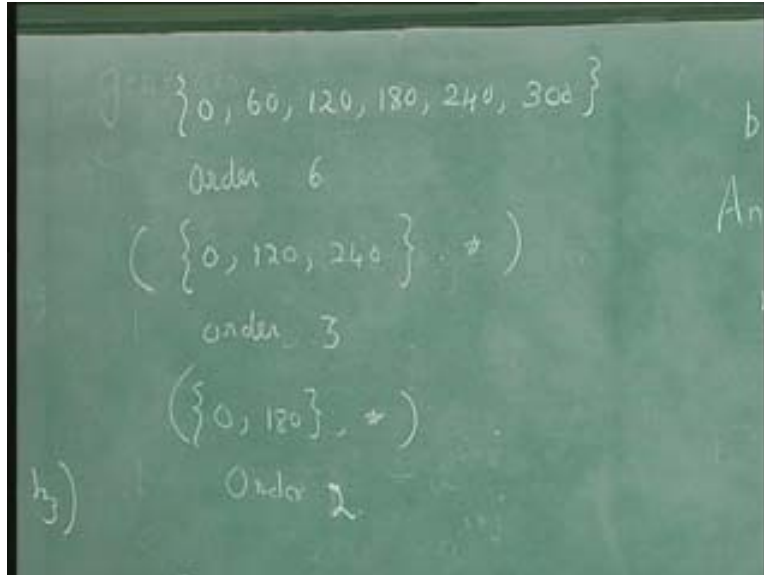 {0, 60, 120, 180, 240, 300}
Order 6
({0, 120, 240}, *)
order 3
({0, 180}, *)
Order 2
h3)
b
An